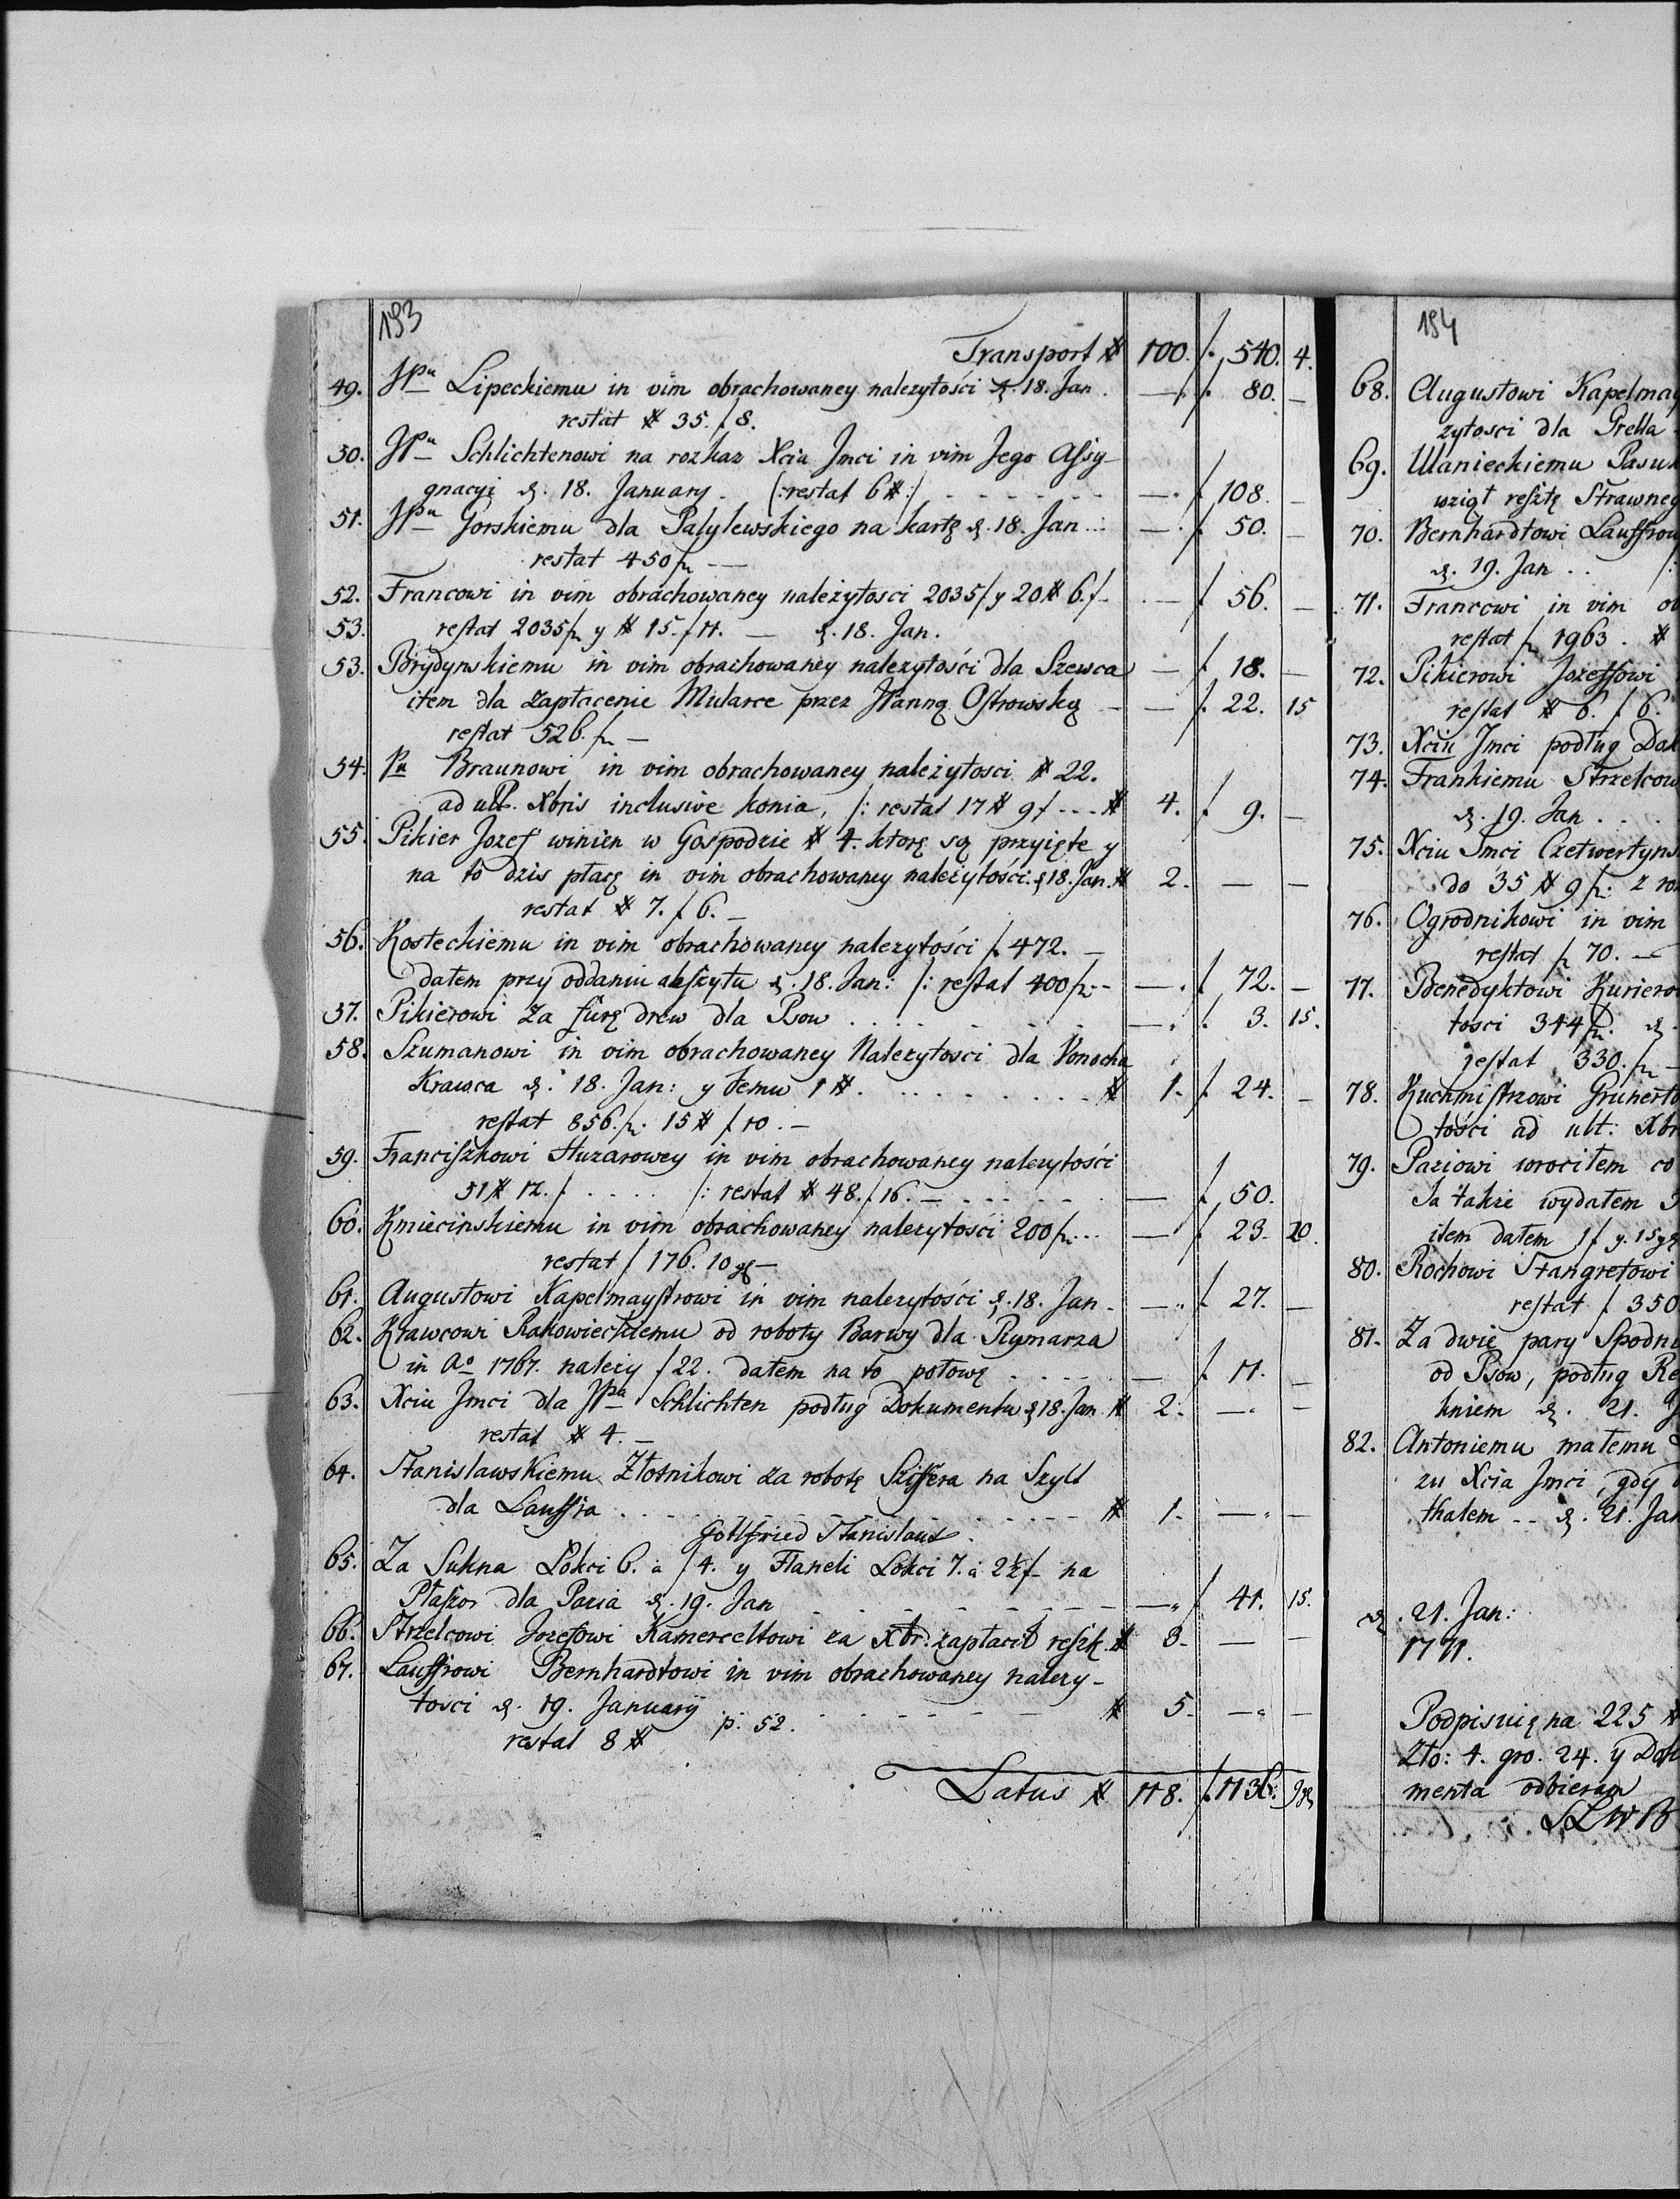 193
Transport # 100. f. 540. 4.
49. JPu Lipeckiemu in vim obrachowaney należytości d. 18. Jan. —. f. 80. —
restat # 35. f 8.
50. JPu Schlichtenowi na rozkaz Xcia Jmci in vim Jego Assy-
gnacyi d. 18. January. (: restat 6 #:) —. f 108. —
51. JPu Gorskiemu dla Palylewskiego na kartę d. 18. Jan... —. f. 50. —
restat 450 f. —
52. Francowi in vim obrachowaney należytosci 2035 f y 20 # 6. f. — f 56. —
53. restat 2035 f. y # 15. f 11. — d. 18. Jan.
53. Brydynskiemu in vim obrachowaney należytości dla Szewca — f. 18. —
item dla zapłacenie Mularce przez JPannę Ostrowskę — — f. 22. 15
restat 526. f. —
54. Pu Braunowi in vim obrachowaney należytosci # 22.
ad ult. Xbris inclusive konia, (: restat 17 # 9 f --- # 4. f 9. —
55. Pikier Jozef winien w Gospodzie # 4. ktorę są przyięte y
na to dzis płacę in vim obrachowaney należytości. d 18. Jan. # 2. — —
restat # 7. f 6. —
56. Kosteckiemu in vim obrachowaney należytości f. 472. —
dałem przy oddaniu abszytu d. 18. Jan: (: restat 400 f. - —. f 72. —
57. Pikierowi za furę drew dla Psow . . . . —. f. 3. 15.
58. Szumanowi in vim obrachowaney Należytosci dla Vonocha
Krawca d. 18. Jan: y temu 1 #. . . . . . # 1. f. 24. —
restat 856. f. 15 # f 10. —
59. Franciszkowi Huzarowey in vim obrachowaney należytości
51 # 12. f. . . . . (: restat # 48. f. 16. — — f. 50.
60. Kmiecinskiemu in vim obrachowaney należytości 200 f... — f 23. 20.
restat f 176. 10 gl —
61. Augustowi Kapelmaystrowi in vim należytości d. 18. Jan - —. f. 27. —
62. Krawcowi Rakowieckiemu od roboty Barwy dla Rymarza
in Ao 1767. należy f 22. dałem na to połowę . . . . . — f. 11. —
63. Xciu Jmci dla JPa Schlichten podług Dokumentu d 18. Jan # 2. —. —
restat # 4. —
64. Stanislawskiemu Złotnikowi za robotę Sziffera na Szylt
dla Lauffra . . . . . # 1. —. —
Gottfried Stanislaus.
65. Za Sukna Łokci 6. a f 4. y Flaneli Łokci 7. a 2½ f — na
Płaszcz dla Pazia d. 19. Jan —. f 41. 15.
66. Strzelcowi Jozefowi Kamerceltowi za Xbr. zapłacił reszt. # 3. — —
67. Lauffrowi Bernhardtowi in vim obrachowaney należy-
tosci d. 19. January . . . . # 5. —. —
restat 8 # p. 52.
Latus # 118. f. 1136. 9 gl
194
68. Augustowi Kapelmay
żytosci dla Prella
69. Ulanieckiemu Pasuk
wziął resztę Strawneg
70. Bernhardtowi Lauffrow
d. 19. Jan . . (:
71. Francowi in vim ob
restat f. 1963. #
72. Pikierowi Jozeffowi
restat # 6. f 6.
73. Xciu Jmci podług Dok
74. Frankiemu Strzelcow
d. 19. Jan . . .
75. Xciu Jmci Czetwertyns
do 35 # 9 f: z ro
76. Ogrodnikowi in vim
restat f. 70. —
77. Benedyktowi Kuriero
tosci 344 f. d.
restat 330. f. —
78. Kuchmistrzowi Grunerto
tości ad ult: Xbr
79. Paziowi wrociłem co
Ja także wydałem 3
item dałem 1 f y. 15 gl
80. Rochowi Stangretowi
restat f 350
81. Za dwie pary Spodni
od Psow, podług Re
kniem d. 21. J
82. Antoniemu małemu
zu Xcia Jmci, gdy
thalem -- d. 21. Jan
d. 21. Jan:
1771.
Podpisuię na 225 #
Zło: 4. gro. 24. y Doku
menta odbieram
SLWB